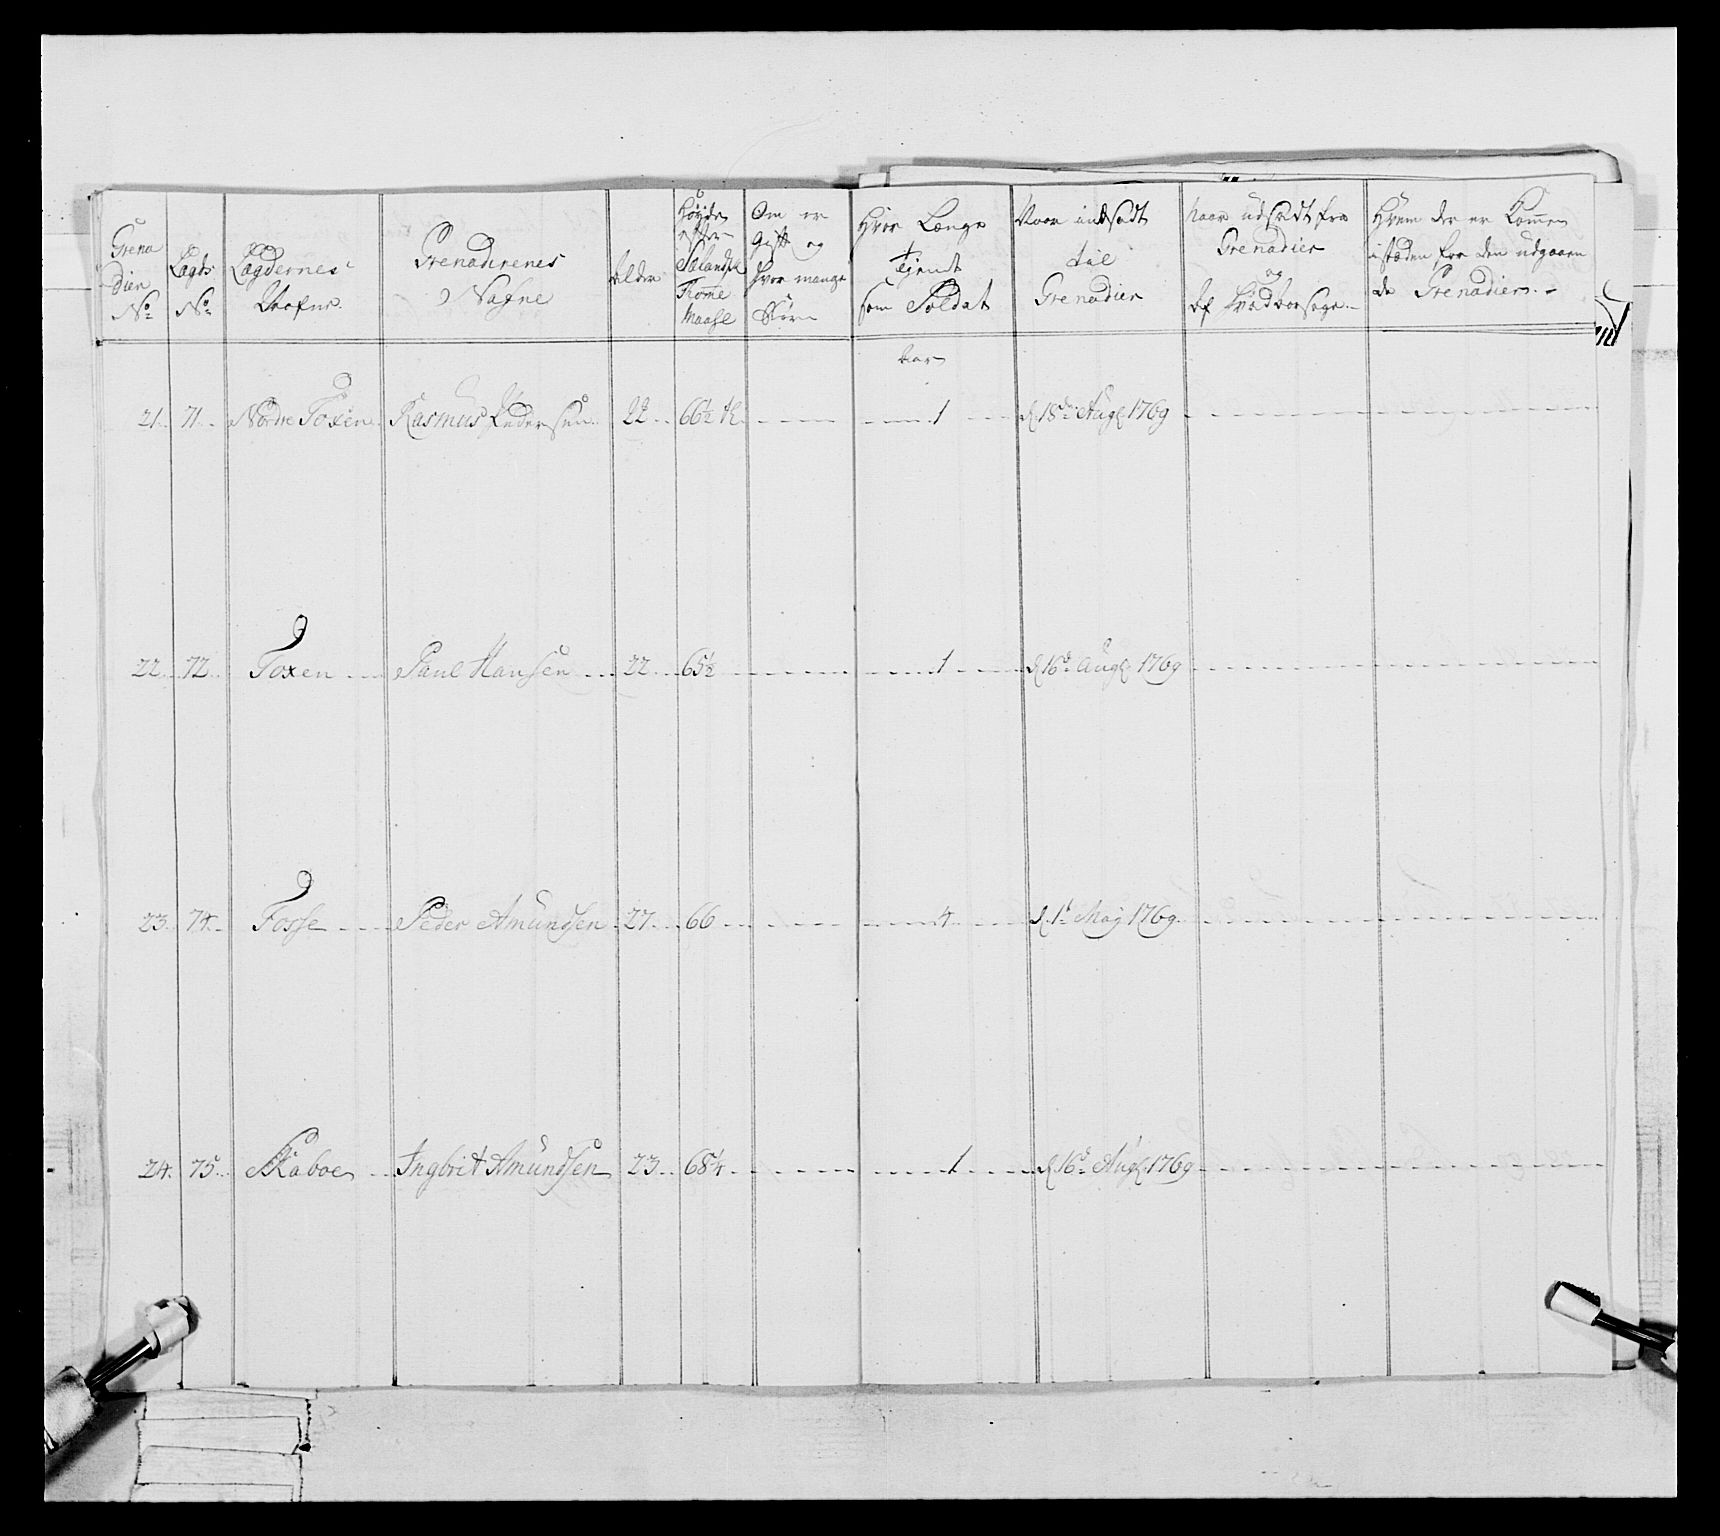 Grena
dier
No
Lægds
No
Lægdernes
Nafne
Grenadirenes
Nafne
Alder
Høyde
efter
Siælandsk
Maase
Om er
Gift og
hvor mange
Børn
Hvor Længe
tient
som Soldat
Naar indsadt
til
Grenadier
Naar udsadt fra
Grenadier
og
af hvad aarsage
Hvem der er Kommen
istæden for den udgaaen
de Grenadier
Aar
21 71 Nordre Toxen Rasmus Pedersen 22 66½ 1 d 18de Aug 1769
22 72 Toxen Paul Hansen 22 65½ 1 d 16d Aug 1769
23 74 Fosse Peder Amundsen 27 66 4 d 1t May 1769
24 75 Skaboe Ingbrit Amundsen 23 68¼ 1 d 16d Aug 1769